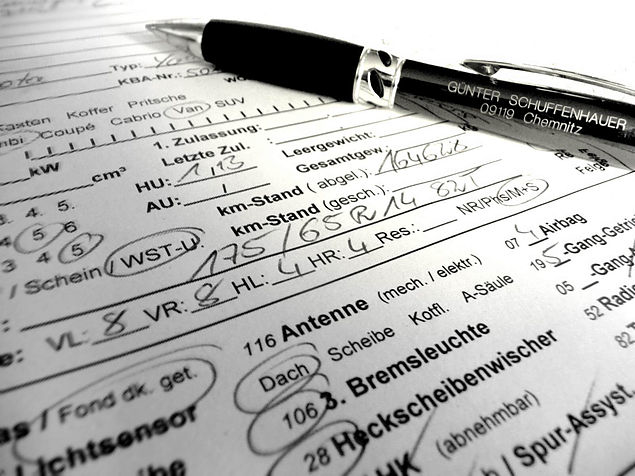 GÜNTER SCHUFFENHAUER
09119 Chemnitz
Typ:
KBA-Nr.:
Kasten Koffer Pritsche
Coupé Cabrio Van SUV
1. Zulassung:
kW
Letzte Zul:
Leergewicht:
cm³
HU: 1,13
Gesamtgew.:
AU: /
km-Stand (abgel.):
3. 4. 5.
km-Stand (gesch.):
4 5 6
3 4 5
/ Schein / WST-U.
175/65 R14 82T
NR/PnS/M+S
VL: 8 VR: 8 HL: 4 HR: 4 Res.:
07 4 Airbag
116 Antenne (mech. / elektr.)
195-Gang-Getri
Dach Scheibe Kotfl. A-Säule
05 -Gang-
/ Fond dk. get.
106 3. Bremsleuchte
52 Radio
Lichtsensor
28 Heckscheibenwischer
82
(abnehmbar)
/ Spur-Assyst.